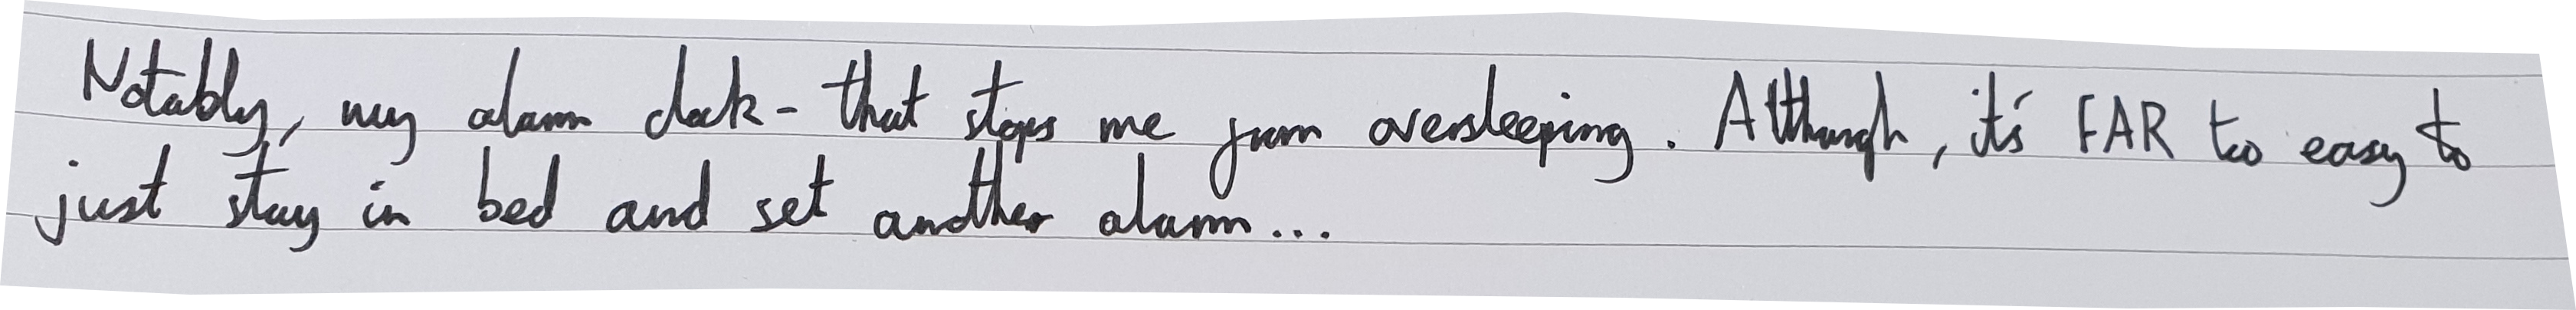 Notably, my alarm clock - that stops me from oversleeping. Although, it's FAR too easy to
just stay in bed and set another alarm...